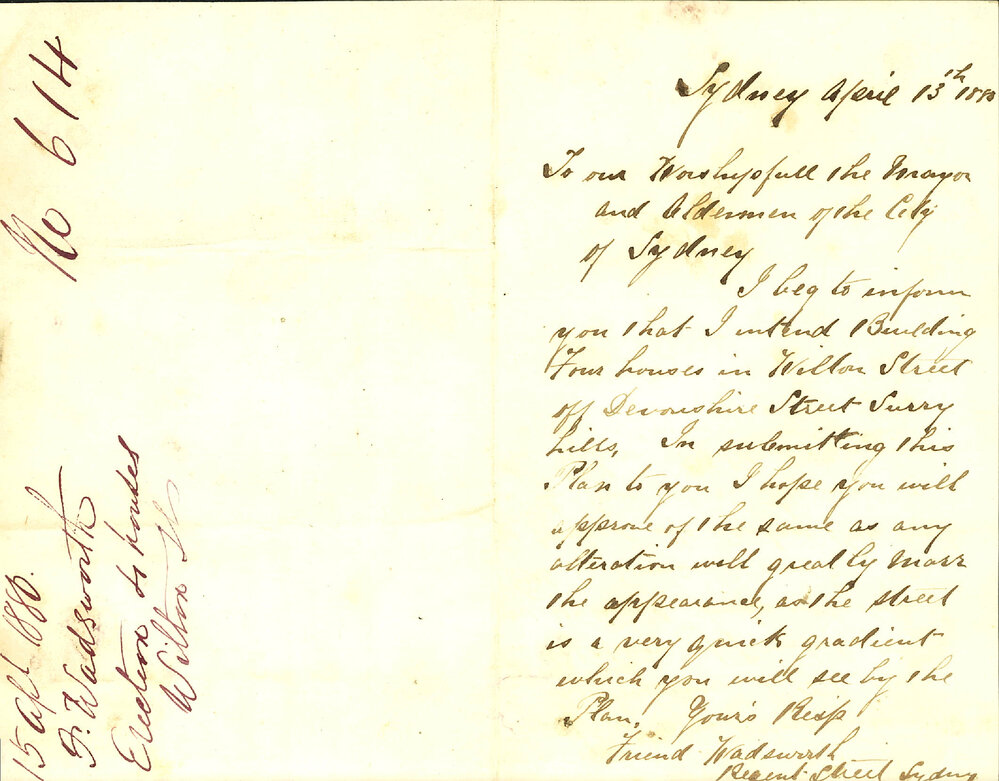 No 614
15 Apl 1880.
F. Wadsworth
Erection of houses
Wilton St
Sydney April 13th 1880
To our Worshipfull the Mayor
and Aldermen of the City
of Sydney
I beg to inform
you that I intend Building
Four houses in Wilton Street
off Devonshire Street Surry
hills, In submitting this
Plan to you I hope you will
approve of the same as any
alteration will greatly marr
the appearance, as the street
is a very quick gradient
which you will see by the
Plan. Your's Resp
Friend Wadsworth
Regent Street Sydney